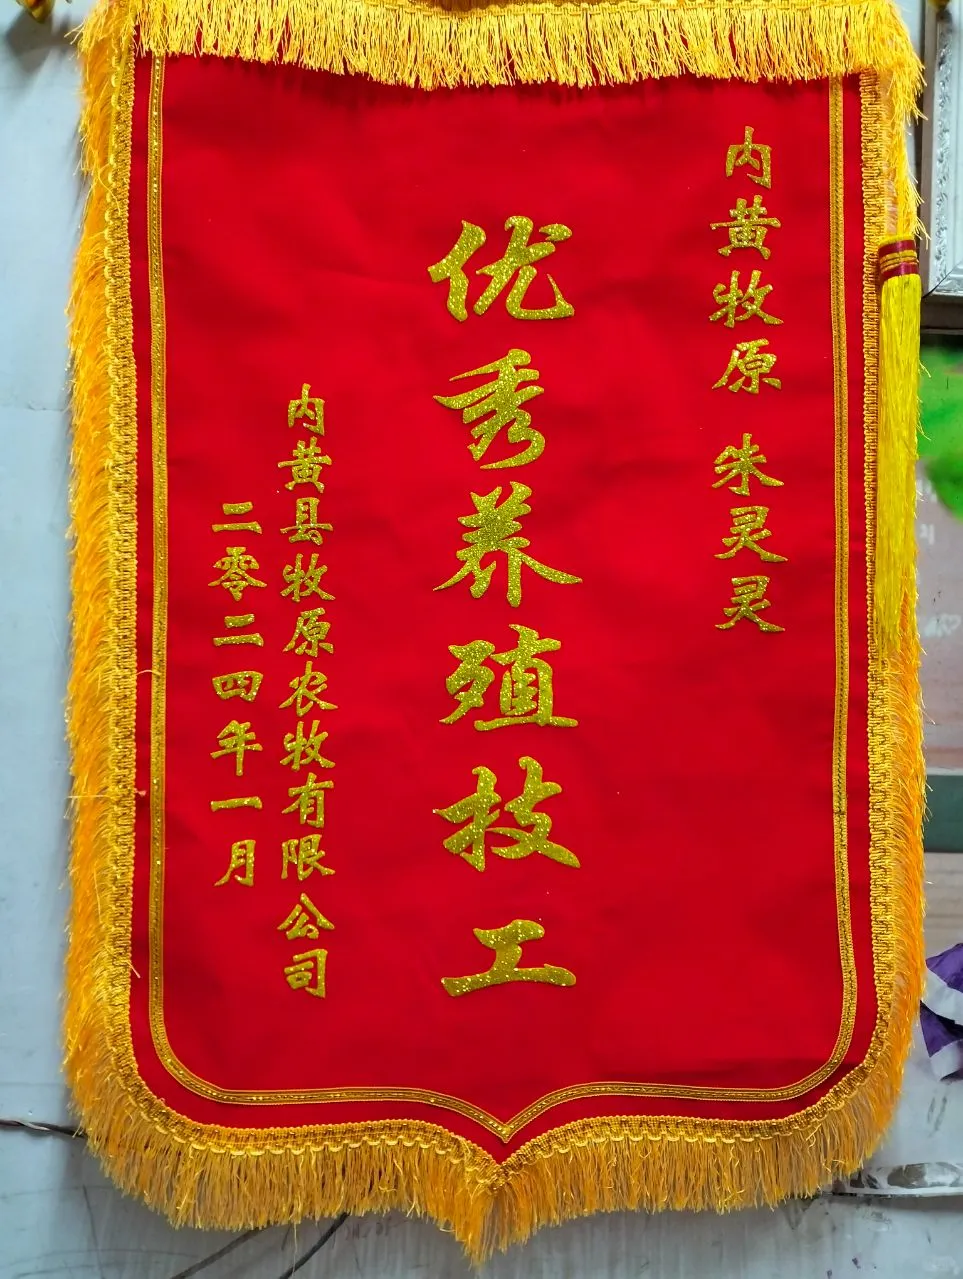 内黄牧原 朱灵灵
优秀养殖技工
内黄县牧原农牧有限公司
二零二四年一月